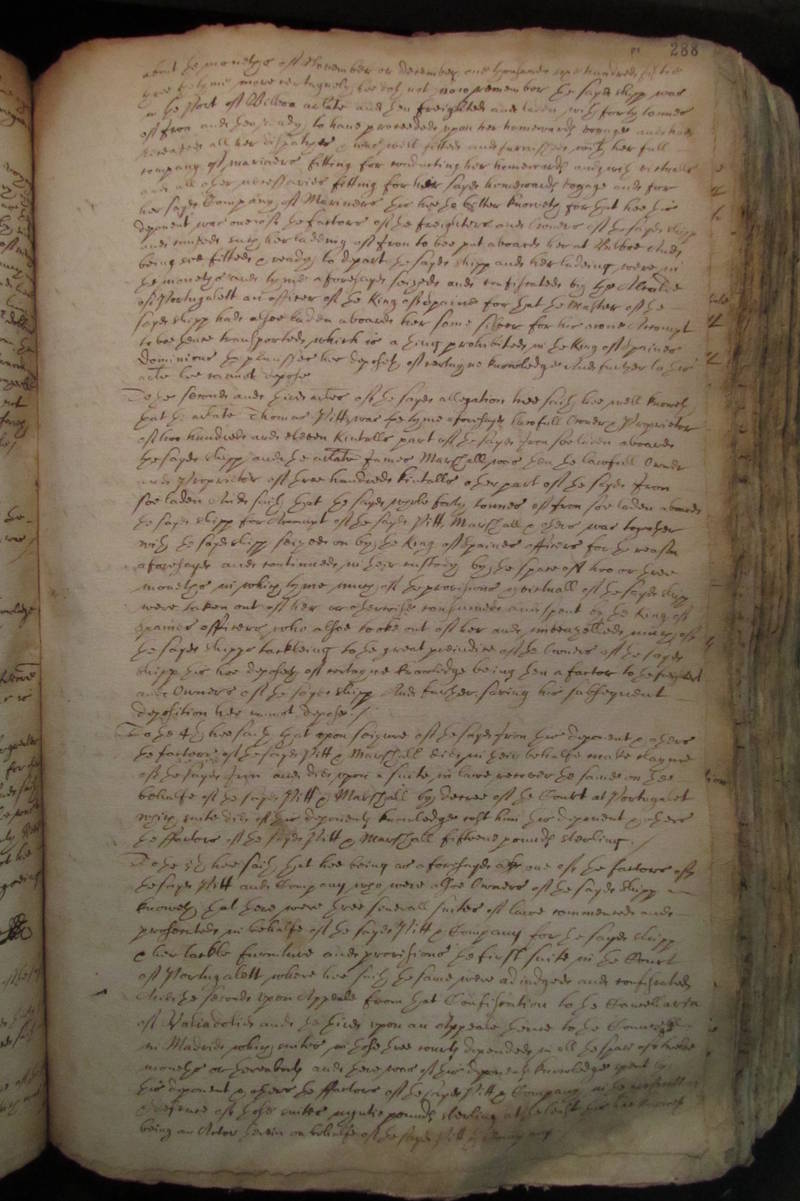 288
about the moneths of November or december one thousand six hundred fiftie
three the tyme more certaynely hee doth not now remember the sayd shipp was
in the Port of Bilboa arlate and then freighted and laden with forty tonnes
of Iron and then ready to have proceeded upon her homewards voyage and had
received all her dispatches was well fitted and furnished with her full
company of mariners fitting for conducting her homewards and with victualls
and all other necessaries fitting for her sayd homewards voyage and for
her sayd Company of Mariners this hee the better knoweth for that hee this
deponent was one of the factors of the freighters and Owners of the sayd shipp
and caused her ladeing of Iron to bee put aboard her at Bilboa And
being soe fitted & ready to depart the sayd shipp and her ladeing were in
the moneths and tyme aforesayd seized and confiscated by the Alcalde
of Portugalett an officer of the King of Spaine for that the Master of the
sayd shipp had alsoe laden aboard her some silver for his owne Accompt
to bee thence transported which is a thing prohibited in the King of Spaines
dominions the premisses hee deposeth of certayne knowledge And further to this
arle hee cannot depose
To the second and third arles of the sayd allegation hee saith hee well knoweth
that the arlate Thomas Pitt was the tyme aforesayd lawfull Owner & Proprietor
of two hundred and eleven Kintalls part of the sayd Iron soe laden aboard
the sayd shipp and the arlate James Marshall was then the lawfull Owner
and Proprietor of three hundred kintalls other part of the sayd Iron
soe laden And saith that the sayd whole forty tonnes of Iron soe laden aboard
the sayd shipp for Accompt of the sayd Pitt Marshall & others was together
with the sayd shipp seized on by the King of Spaines officers for the reason
aforesayd and continued in their custody by the space of two or three
moneths in which tyme much of the provisions & victuall of the sayd shipp
were taken out of her or otherwise consumed and spent by the King of
Spaines officers who alsoe tooke out of her and imbeazelled much of
the sayd shipps tackleing to the great prejudice of the Owners of the sayd
shipp this hee deposeth of certayne knowledge being then a factor to the freighters
and Owners of the sayd shipp And further saving his subsequent
deposition hee cannot depose /
To the 4th hee saith that upon seizure of the sayd Iron this deponent & others
the factors of the sayd Pitt & Marshall did in their behalfe make clayme
of the sayd Iron and did upon a suite in lawe recover the same on the
behalfe of the sayd Pitt & Marshall by decree of the Court at Portugalet
which suite did of this deponents knowledge cost him this deponent & others
the ffactors of the sayd Pitt & Marshall fifteene pounds sterling. /
To the 5th hee saith that hee being as aforesayd one of the factors of
the sayd Pitt and Company who were alsoe Owners of the sayd shipp
knoweth that there were three severall suites of lawe commenced and
prosecuted in behalfe of the sayd Pitt & Company for the sayd shipp
& her tackle furniture and provisions the first suite in the Court
of Portugalett where hee saith the same were adiudged and confiscated
And the second upon Appeale from that Confiscation to the Cancellaria
of Valiadolid and the third upon an Appeale thence to the Councell
in Madrid which suites in those three courts depended in all the space of twelve
moneths or thereabouts and there was of this deponents knowledge spent by
this deponent & others the ffactors of the sayd Pitt & Company in the prosecution
& defence of those suites pounds sterling at the least this hee knoweth
being an Actor therein on behalfe of the sayd Pitt & Company